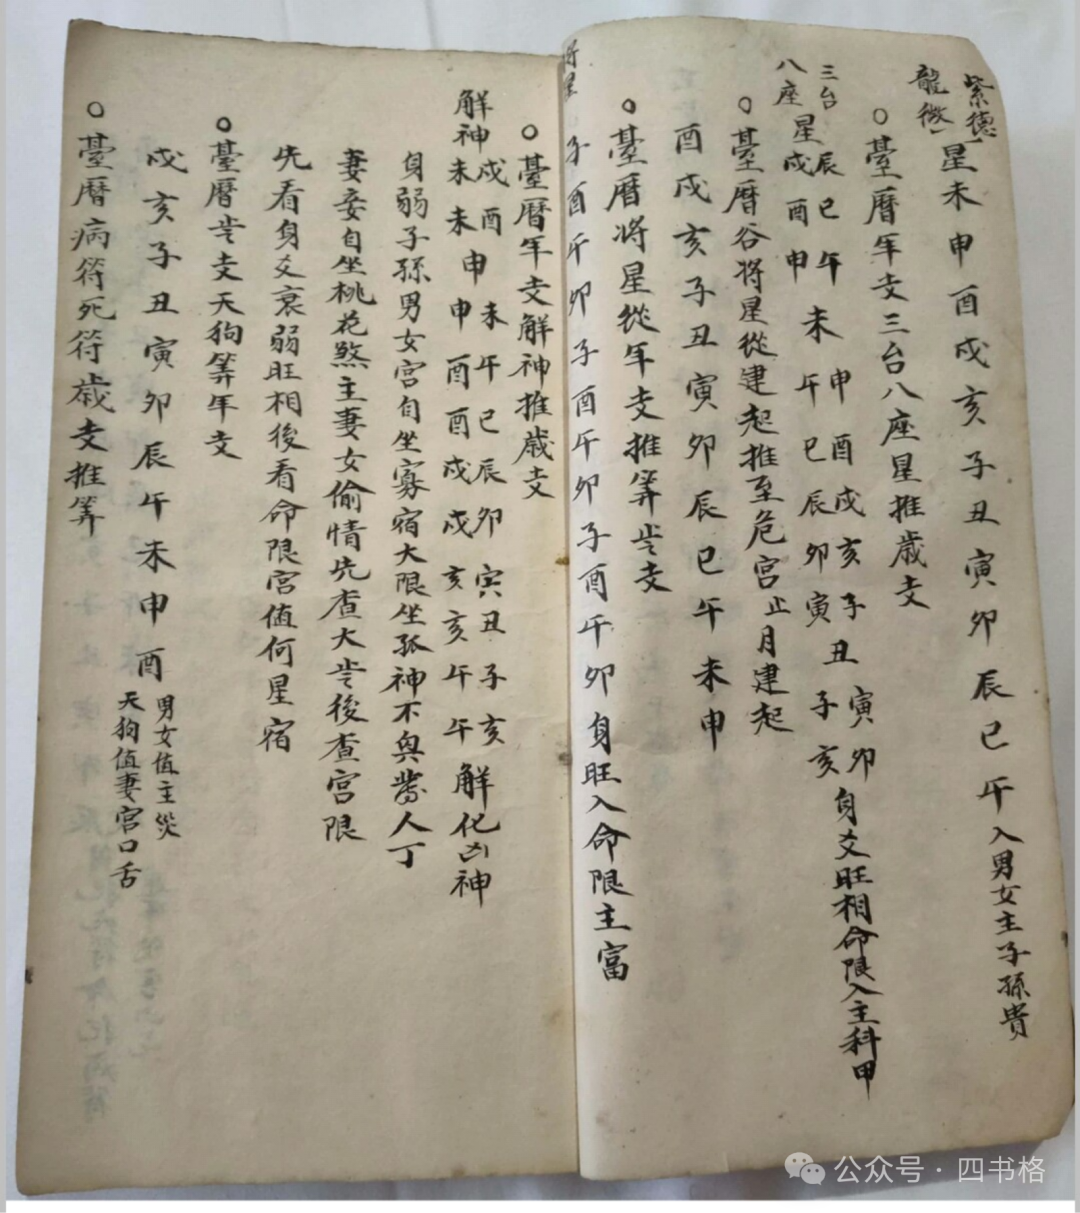 紫德
龍微
星未申酉戌亥子丑寅卯辰巳午入男女主子孫貴
○臺曆年支三台八座星推歲支
三台
八座
星
辰巳午未申酉戌亥子丑寅卯
戌酉申未午巳辰卯寅丑子亥
身爻旺相命限入主科甲
○臺曆谷將星從建起推至危宮止月建起
酉戌亥子丑寅卯辰巳午未申
○臺曆將星從年支推筭歩支
將星
子酉午卯子酉午卯子酉午卯子酉午卯身旺入命限主富
○臺曆年支解神推歲支
解神
戌酉申未午巳辰卯寅丑子亥
未未申申酉酉戌戌亥亥午午
解化凶神
身弱子孫男女宮自坐寡宿大限坐孤神不與發人丁
妻妾自坐桃花煞主妻女偷情先查大歩後查宮限
先看身爻衰弱旺相後看命限宮值何星宿
○臺曆歩支天狗筭年支
戌亥子丑寅卯辰午未申酉
男女值主災
天狗值妻宮口舌
○臺曆病符死符歲支推筭
公众号·四书格